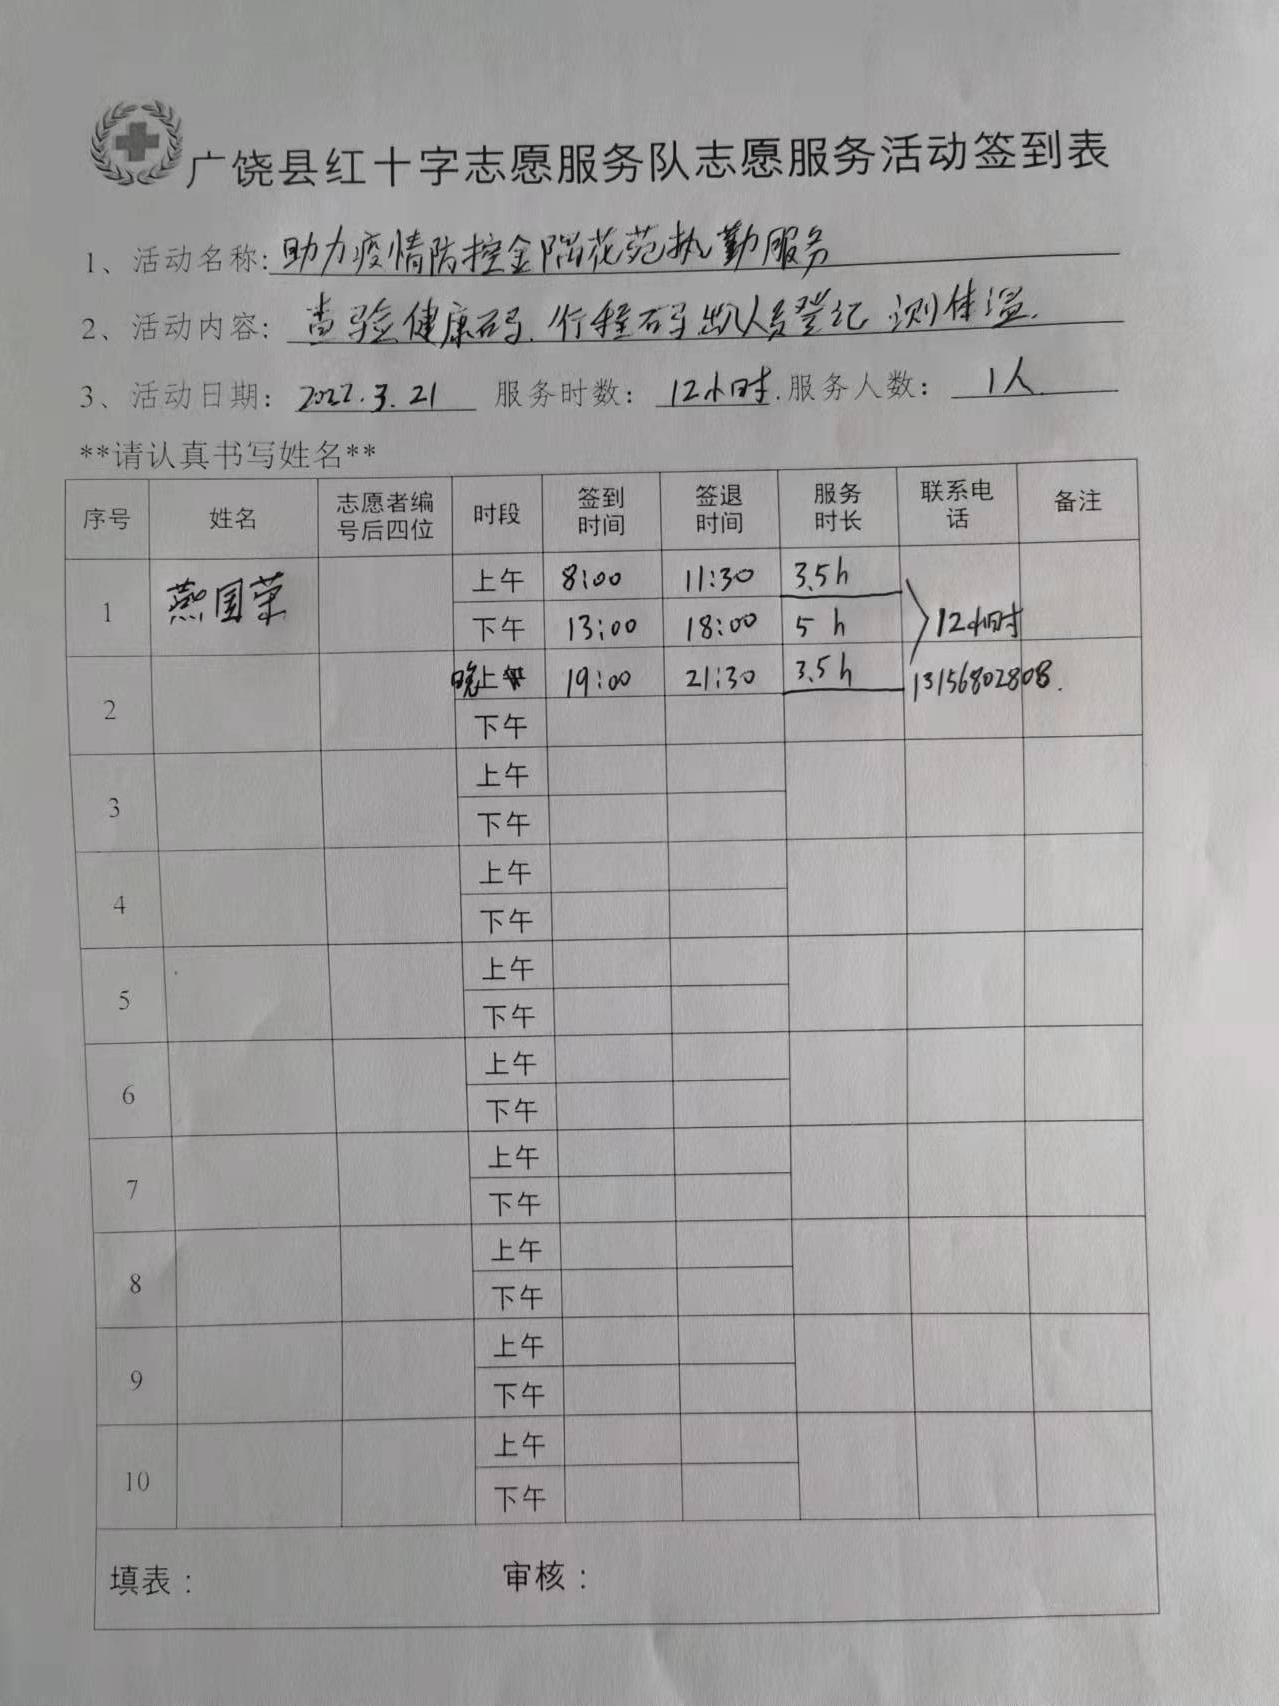 广饶县红十字志愿服务队志愿服务活动签到表
1、活动名称:助力疫情防控金隅花苑执勤服务
2、活动内容: 查验健康码.行程码出入人员登记 测体温.
3、活动日期: 2022.3.21 服务时数: 12小时.服务人数: 1人.
**请认真书写姓名**
序号 姓名 志愿者编号后四位 时段 签到时间 签退时间 服务时长 联系电话 备注
1 燕国荣 上午 8:00 11:30 3.5h
下午 13:00 18:00 5 h 12小时
2 晚上 19:00 21:30 3.5h 13156802808.
下午
3 上午
下午
4 上午
下午
5 上午
下午
6 上午
下午
7 上午
下午
8 上午
下午
9 上午
下午
10 上午
下午
填表: 审核: